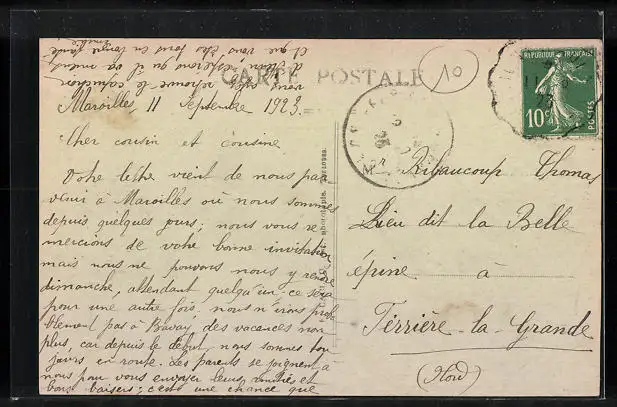 CARTE POSTALE
10
REPUBLIQUE FRANÇAISE
10c
POSTES
Maroilles, 11 Septembre 1923.
Cher cousin et cousine
Votre lettre vient de nous par
venir à Maroilles où nous sommes
depuis quelques jours; nous vous re
mercions de votre bonne invitation
mais nous ne pouvons nous y rendre
dimanche, attendant quelqu'un; ce sera
pour une autre fois, nous n'irons prob
blement pas à Bavay des vacances non
plus, car depuis le début, nous sommes tou
jours en route. Les parents se joignent à
nous pour vous envoyer leurs amitiés et
bons baisers; c'est une chance que
vous retrouvé le capuchon
d' espérons qu'il va mieux
et que vous êtes tous en bonne santé
Mr Ribaucoup Thomas
Lieu dit la Belle
épine à
Ferrière-la-Grande
(Nord)